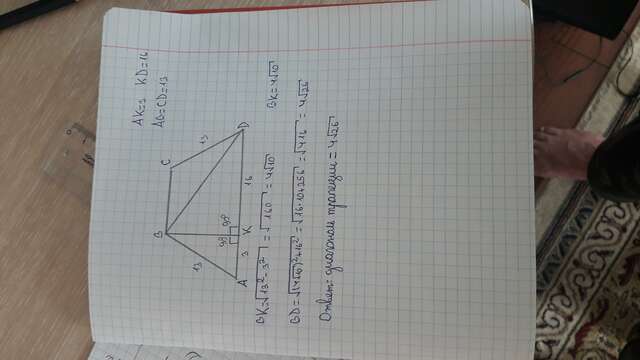 AK=3 KD=16
AB=CD=13
B
C
13
13
90°
90°
A
3
K
16
D
BK=√13²-3² = √160 = 4√10
BK=4√10
BD=√(4√10)²+16² = √16·10+256 = √416 = 4√26
Ответ: диагональ трапеции = 4√26